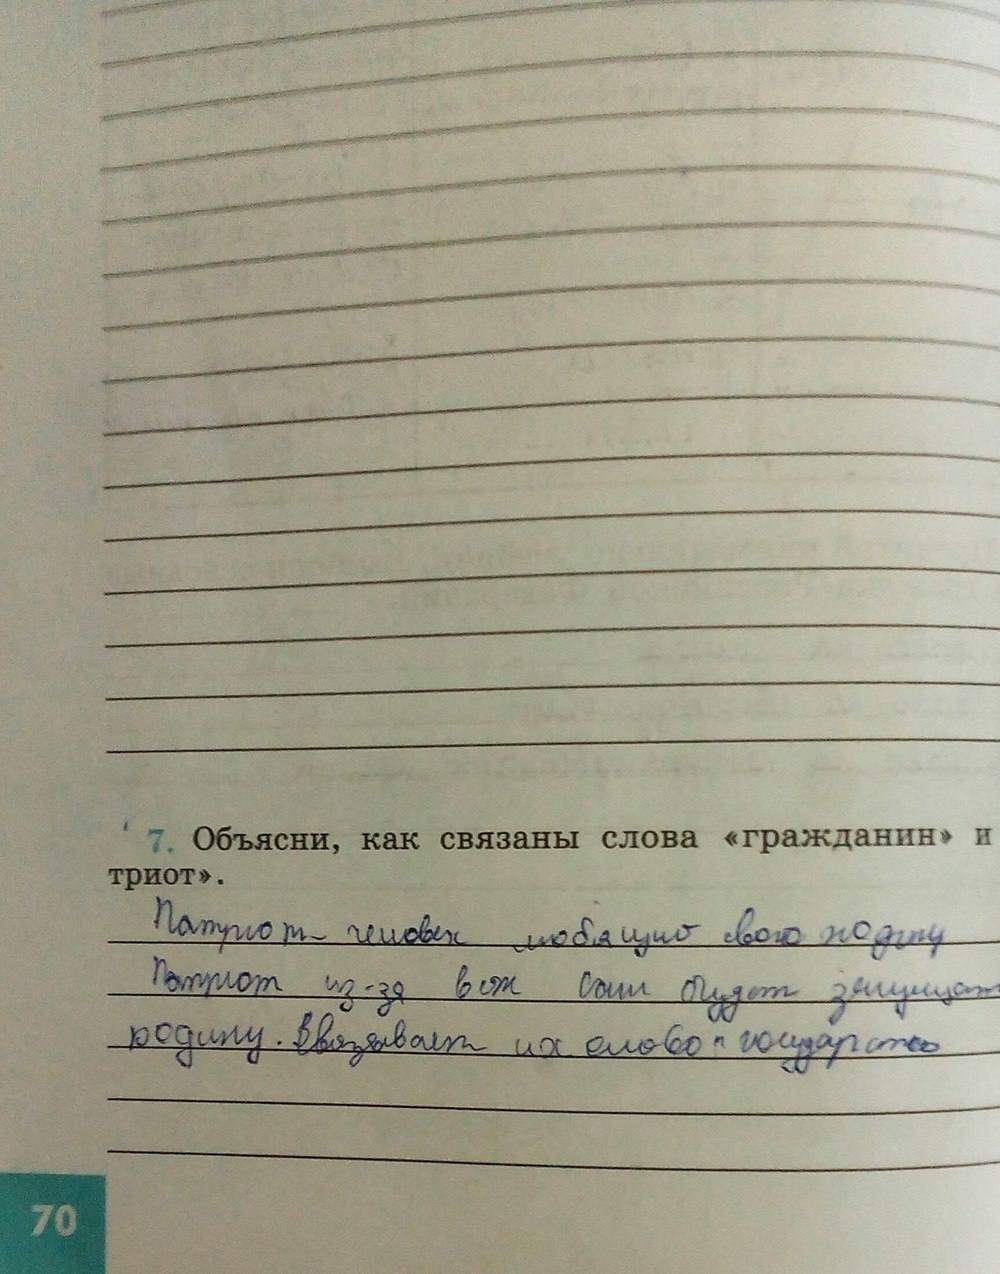 7. Объясни, как связаны слова «гражданин» и
триот».
Патриот человек любящий свою родину
Патриот из-за всех сил будет защищат
родину. Ввязывает их слово "государство
70